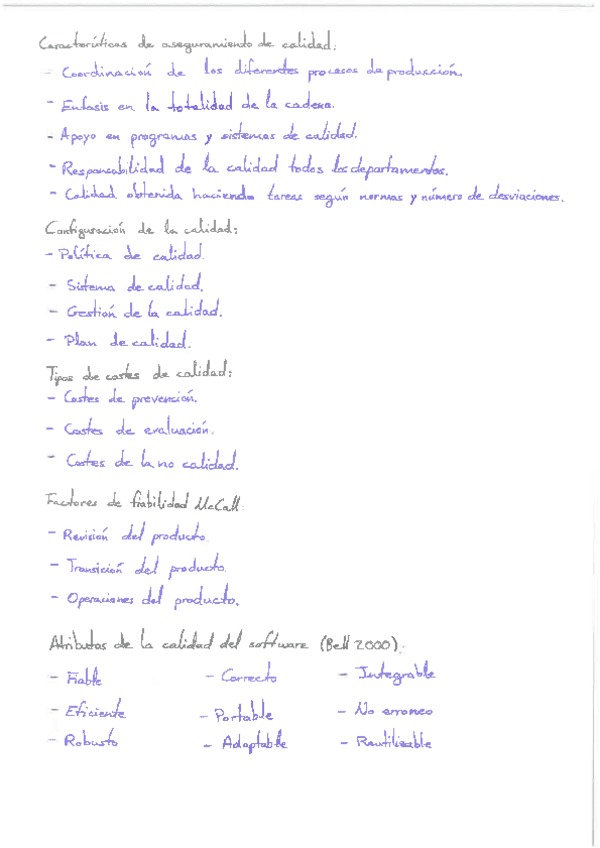 Características de aseguramiento de calidad:
- Coordinación de los diferentes procesos de producción.
- Enfasis en la totalidad de la cadena.
- Apoyo en programas y sistemas de calidad.
- Responsabilidad de la calidad todos los departamentos.
- Calidad obtenida haciendo tareas según normas y número de desviaciones.
Configuración de la calidad:
- Política de calidad.
- Sistema de calidad.
- Gestión de la calidad.
- Plan de calidad.
Tipos de costes de calidad:
- Costes de prevención.
- Costes de evaluación.
- Costes de la no calidad.
Factores de fiabilidad McCall:
- Revisión del producto.
- Transición del producto.
- Operaciones del producto.
Atributos de la calidad del software (Bell 2000):
- Fiable - Correcto - Integrable
- Eficiente - Portable - No erroneo
- Robusto - Adaptable - Reutilizable